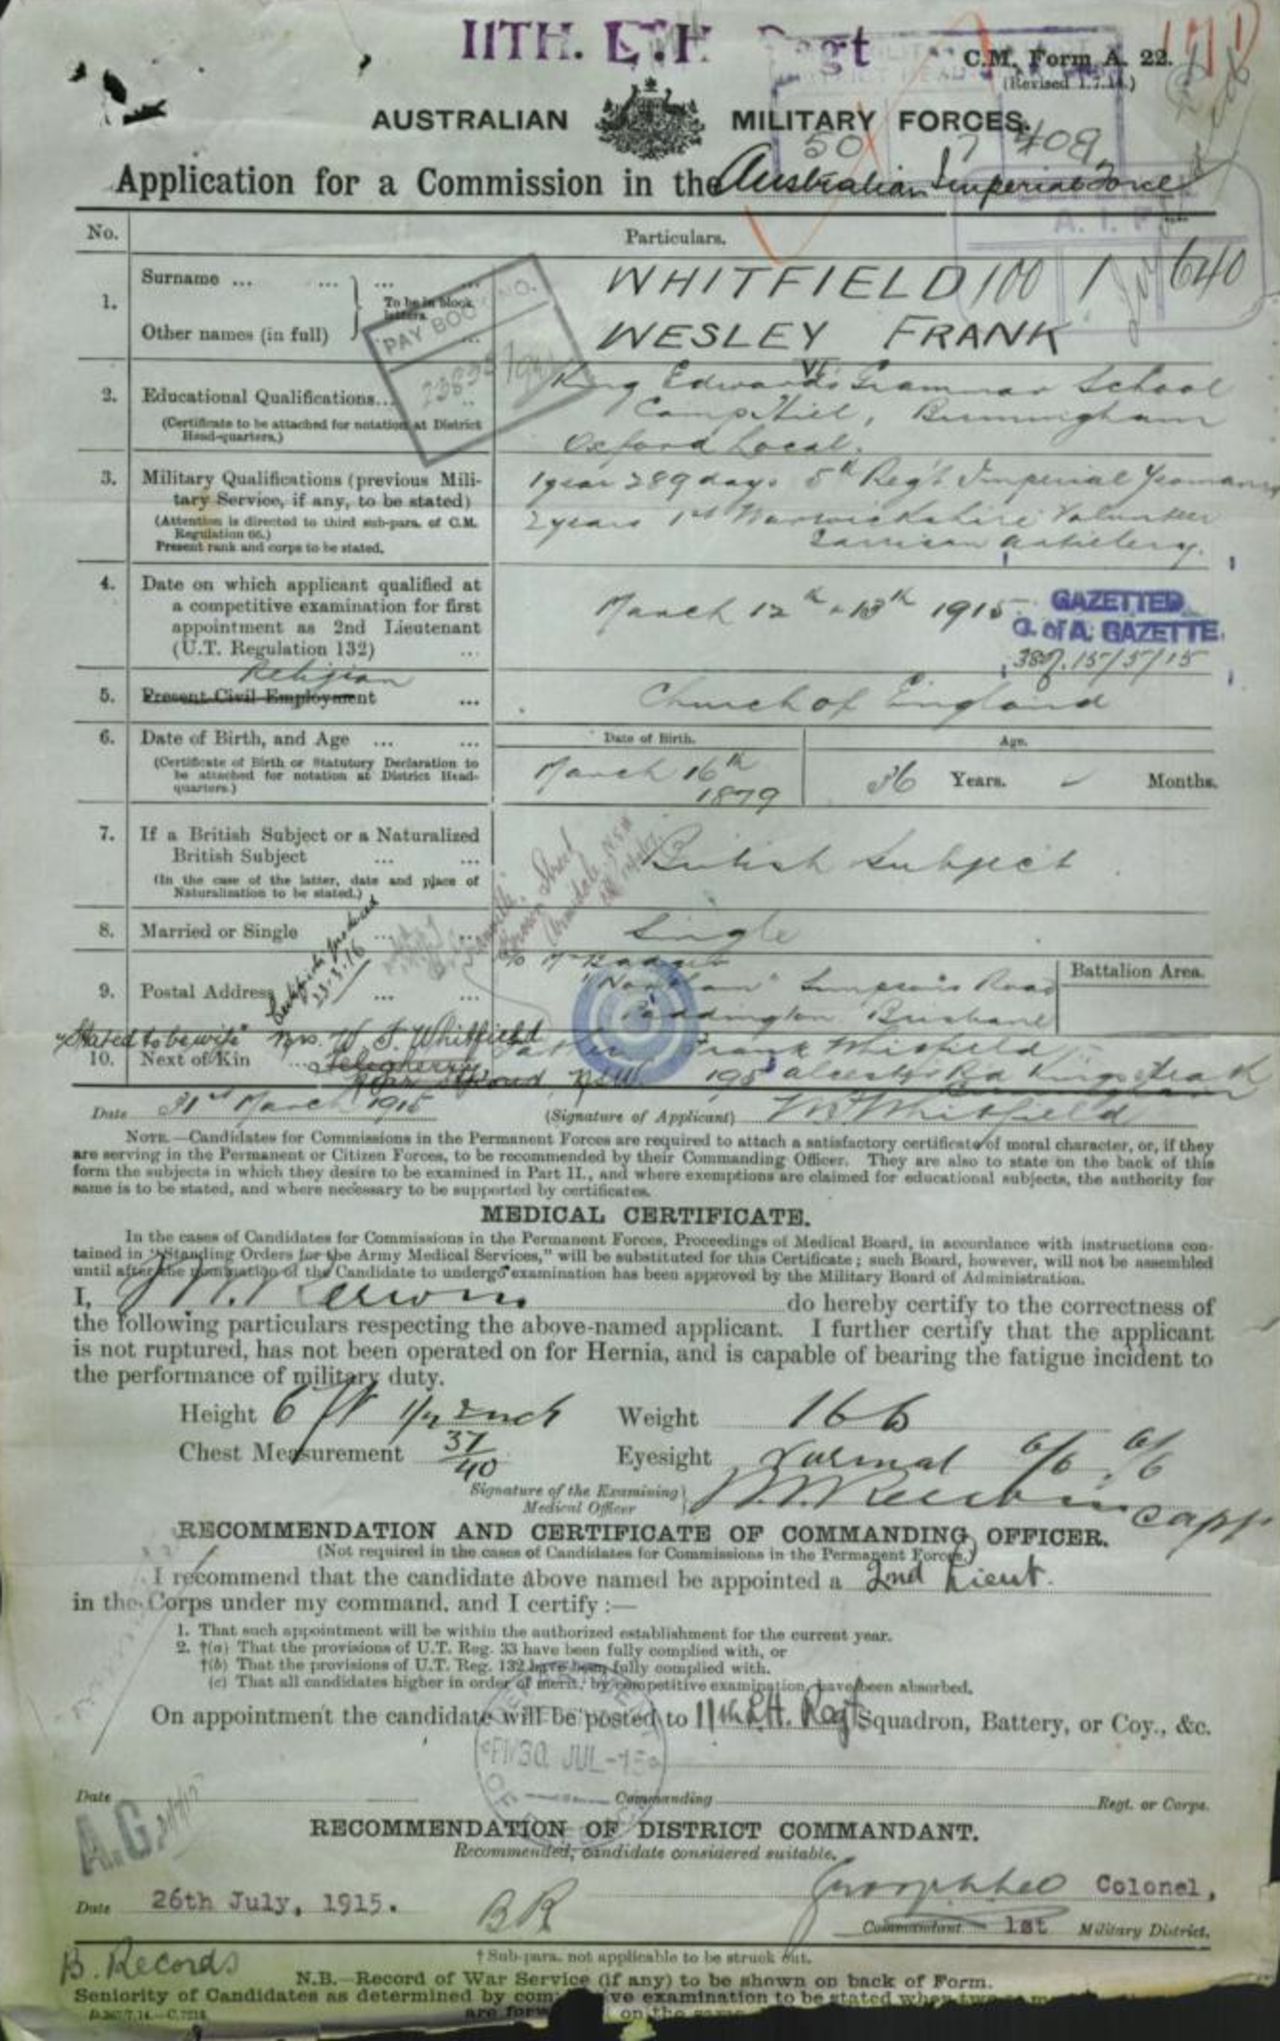 11TH. L.H. Regt
C.M. Form A. 22.
(Revised 1.7.14.)
AUSTRALIAN MILITARY FORCES.
50 7 409
Application for a Commission in the Australian Imperial Force
A. I. F.
No. Particulars.
1. Surname ... ... ... WHITFIELD 100 / 1 / 640
To be in block letters.
Other names (in full) WESLEY FRANK
PAY BOOK NO.
2. Educational Qualifications... King Edwards VI Grammar School
Camp Hill, Birmingham
(Certificate to be attached for notation at District Head-quarters.)
Oxford Local.
3. Military Qualifications (previous Military Service, if any, to be stated) 1 year 289 days 5th Reg't Imperial Yeomanry
(Attention is directed to third sub-para. of C.M. Regulation 66.) 2 years 1st Warwickshire Volunteer
Present rank and corps to be stated. Garrison Artillery.
4. Date on which applicant qualified at a competitive examination for first appointment as 2nd Lieutenant (U.T. Regulation 132) ... March 12th & 13th 1915.
GAZETTED
C. of A. GAZETTE.
15/5/15
Religion
5. Present Civil Employment ... Church of England
6. Date of Birth, and Age ... ... Date of Birth. Age.
(Certificate of Birth or Statutory Declaration to be attached for notation at District Head-quarters.)
March 16th 1879 36 Years. Months.
7. If a British Subject or a Naturalized British Subject ... ... British Subject
(In the case of the latter, date and place of Naturalization to be stated.)
Brown Street
Armidale NSW
8. Married or Single ... ... Single
Certificate produced
23.3.16
9. Postal Address ... ... c/o Mr
Simpsons Road
Paddington Brisbane
Battalion Area.
"Stated to be wife" Mrs. W. F. Whitfield
10. Next of Kin ... Telegherry Father Frank Whitfield
near Stroud, NSW 195 Alcester Rd Kings Heath
Birmingham
Date 31st March 1915 (Signature of Applicant) W F Whitfield
NOTE.—Candidates for Commissions in the Permanent Forces are required to attach a satisfactory certificate of moral character, or, if they
are serving in the Permanent or Citizen Forces, to be recommended by their Commanding Officer. They are also to state on the back of this
form the subjects in which they desire to be examined in Part II., and where exemptions are claimed for educational subjects, the authority for
same is to be stated, and where necessary to be supported by certificates.
MEDICAL CERTIFICATE.
In the cases of Candidates for Commissions in the Permanent Forces, Proceedings of Medical Board, in accordance with instructions con-
tained in "Standing Orders for the Army Medical Services," will be substituted for this Certificate; such Board, however, will not be assembled
until after the nomination of the Candidate to undergo examination has been approved by the Military Board of Administration.
I, do hereby certify to the correctness of
the following particulars respecting the above-named applicant. I further certify that the applicant
is not ruptured, has not been operated on for Hernia, and is capable of bearing the fatigue incident to
the performance of military duty.
Height 6 ft 1/2 inch Weight 166
Chest Measurement 37/40 Eyesight Normal 6/6 6/6
Signature of the Examining Medical Officer Capt
RECOMMENDATION AND CERTIFICATE OF COMMANDING OFFICER.
(Not required in the cases of Candidates for Commissions in the Permanent Forces.)
I recommend that the candidate above named be appointed a 2nd Lieut.
in the Corps under my command, and I certify :—
1. That such appointment will be within the authorized establishment for the current year.
2. †(a) That the provisions of U.T. Reg. 33 have been fully complied with, or
†(b) That the provisions of U.T. Reg. 132 have been fully complied with.
(c) That all candidates higher in order of merit, by competitive examination, have been absorbed.
On appointment the candidate will be posted to 11th L.H. Regt Squadron, Battery, or Coy., &c.
30 JUL 15
Date Commanding Regt. or Corps.
A.G.
RECOMMENDATION OF DISTRICT COMMANDANT.
Recommended, candidate considered suitable.
Colonel,
Date 26th July, 1915. BR
Commandant 1st Military District.
B. Records
† Sub-para. not applicable to be struck out.
N.B.—Record of War Service (if any) to be shown on back of Form.
Seniority of Candidates as determined by ve examination to be stated when two
are forw on the same